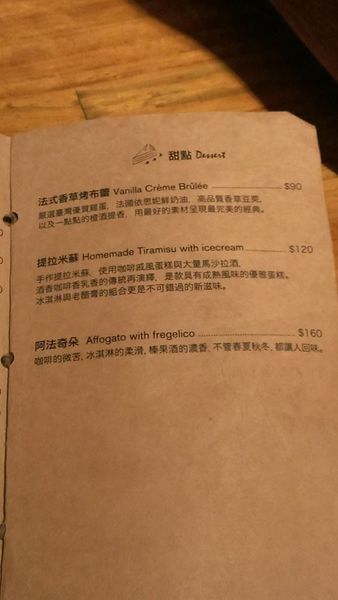 甜點 Dessert
法式香草烤布蕾 Vanilla Crème Brûlée $90
嚴選臺灣優質雞蛋, 法國依思妮鮮奶油, 高品質香草豆莢,
以及一點點的橙酒提香, 用最好的素材呈現最完美的經典。
提拉米蘇 Homemade Tiramisu with icecream $120
手作提拉米蘇, 使用咖啡戚風蛋糕與大量馬沙拉酒,
酒香咖啡香乳香的傳統再演繹, 是款具有成熟風味的優雅蛋糕。
冰淇淋與老醋膏的組合更是不可錯過的新滋味。
阿法奇朵 Affogato with fregelico $160
咖啡的微苦, 冰淇淋的柔滑, 榛果酒的濃香, 不管春夏秋冬, 都讓人回味。